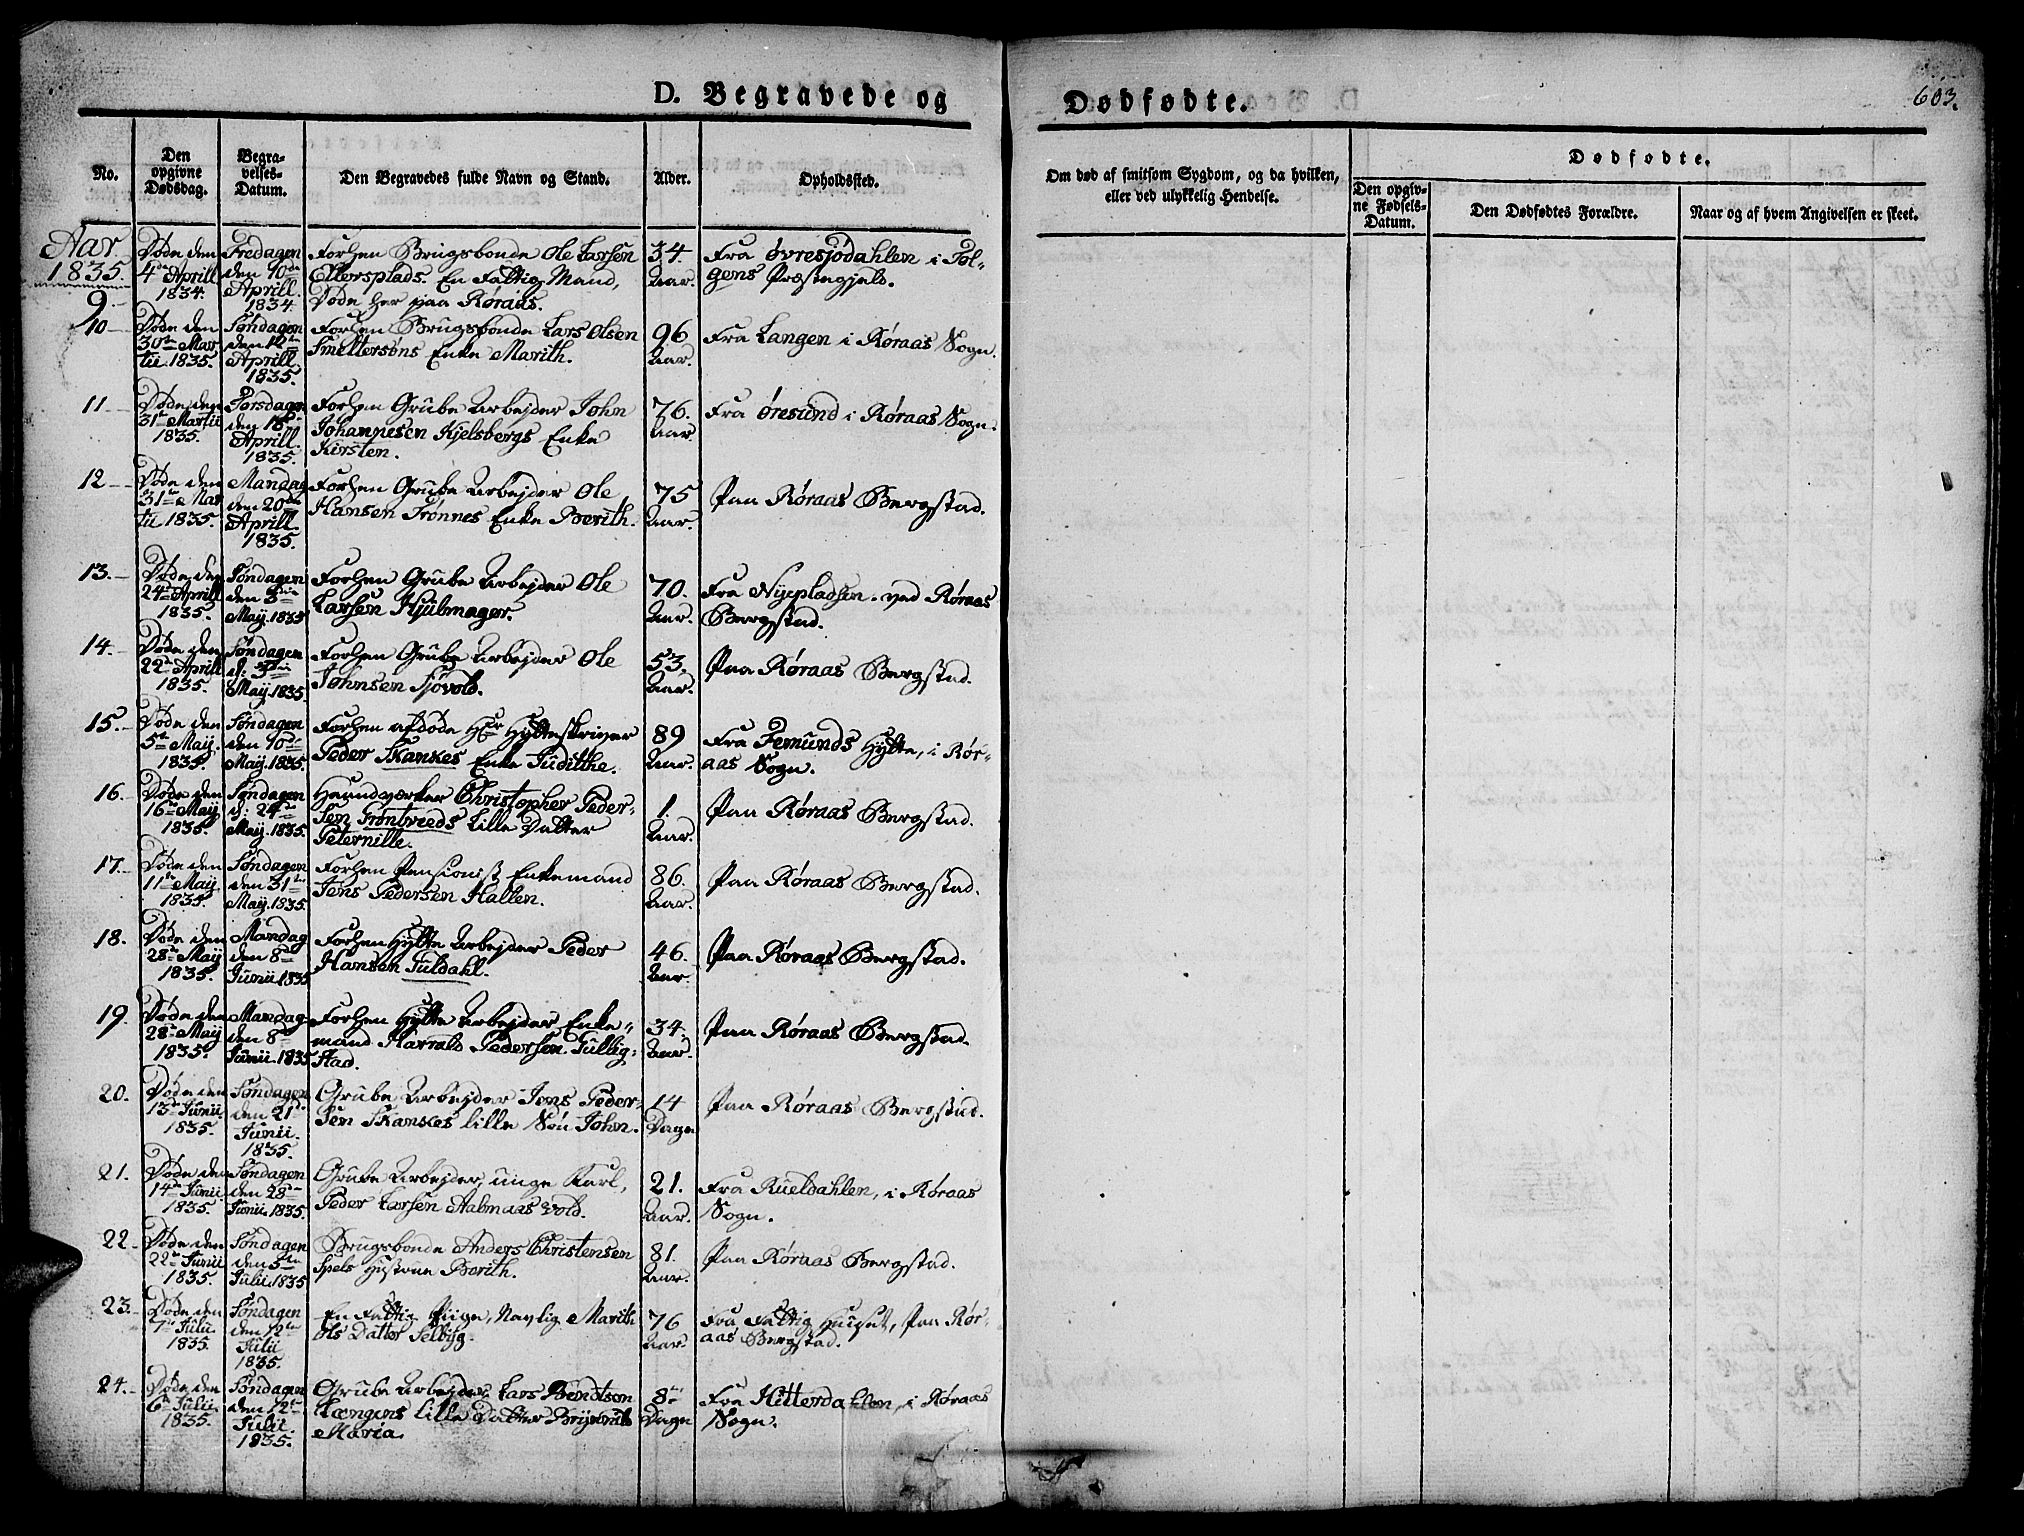 D. Begravede og
Dødfødte.
603.
No.
Den opgivne Dødsdag.
Begravelses-Datum.
Den Begravedes fulde Navn og Stand.
Alder.
Opholdssted.
Om død af smitsom Sygdom, og da hvilken, eller ved ulykkelig Hendelse.
Dødfødte.
Den opgivne Fødsels-Datum.
Den Dødfødtes Forældre.
Naar og af hvem Angivelsen er skeet.
Aar 1835.
9. Døde den 4de Aprill 1834. Fredagen den 10de Aprill 1834. Forhen Brugsbonde Ole Larsen Ellersplads. En Fattig Mand, Døde her paa Røraas. 34. Aar. Fra Øvresjødahlen i Tolgens Præstegjeld.
10 Døde den 30te Martii 1835. Søndagen den 12te Aprill 1835. Forhen Brugsbonde Lars Olsen Smeltersøns Enke Marith. 96 Aar. Fra Langen i Røraas Sogn.
11 Døde den 31te Martii 1835. Torsdagen den Aprill 1835. Forhen Grube Arbejder John Johannesen Kjelsbergs Enke Kirsten. 76. Aar. Fra Øresund i Røraas Sogn.
12 Døde den 31te Martii 1835. Mandag den 20de Aprill 1835. Forhen Grube Arbejder Ole Hansen Trønnes Enke Berith. 75 Aar. Paa Røraas Bergstad.
13. Døde den 24de Aprill 1835. Søndagen den 3die Maij. 1835 Forhen Grube Arbejder Ole Larsen Hjulmager. 70. Aar. Fra Nyepladsen ved Røraas Bergstad.
14. Døde den 22de Aprill 1835. Søndagen d: 3die Maij. 1835 Forhen Grube Arbejder Ole Johnsen Sjøvold. 53. Aar. Paa Røraas Bergstad.
15. Døde den 5te Maij. 1835. Søndagen den 10de Maij. 1835. Forhen afdøde Hr Hytteskriver Peder Skankes Enke Juditthe. 89 Aar. Fra Femunds Hytte, i Røraas Sogn.
16. Døde den 16de Maij 1835. Søndagen d: 24de Maij. 1835. Haandværker Christopher Pedersen Trøntvieds Lille Datter Peternille. 1. Aar. Paa Røraas Bergstad.
17. Døde den 11te Maij. 1835. Søndagen den 31te Maij. 1835. Forhen Pensionist Enkemand Jens Pedersen Hallen. 86. Aar. Paa Røraas Bergstad.
18. Døde den 28de Maij 1835. Mandag den 8de Junii 1835 Forhen Hytte Arbejder Peder Hansen Tuldahl. 46. Aar. Paa Røraas Bergstad.
19. Døde den 28de Maij 1835. Mandag den 8de Junii 1835 Forhen Hytte Arbejder Enkemand Harrals Pedersen Tullingstad. 34. Aar. Paa Røraas Bergstad.
20. Døde den 13de Junii 1835. Søndagen den 21de Junii. 1835. Grube Arbejder Jens Pedersen Skankes lille Søn John. 14 Dage Paa Røraas Bergstad.
21. Døde den 14de Junii 1835. Søndagen den 28de Junii. 1835. Grube Arbejder, unge Karl, Peder Larsen Aalmaas vold. 21. Aar. Fra Rueldahlen, i Røraas Sogn.
22 Døde den 22de Junii 1835. Søndagen den 5te Julii. 1835 Brugsbonde Anders Christensen Spels Hustrue Berith. 81. Aar. Paa Røraas Bergstad.
23. Døde den 7de Julii 1835. Søndagen den 12te Julii 1835. En Fattig Piige, Navnlig Marith Ols Datter Selbyg. 76 Aar. Fra Fattig Huuset, Paa Røraas Bergstad.
24. Døde den 6te Julii. 1835. Søndagen den 12te Julii. 1835. Grube Arbejder Lars Bendtsen Længens lille Datter Maria. 8te Dage Fra Hitterdahlen, i Røraas Sogn.